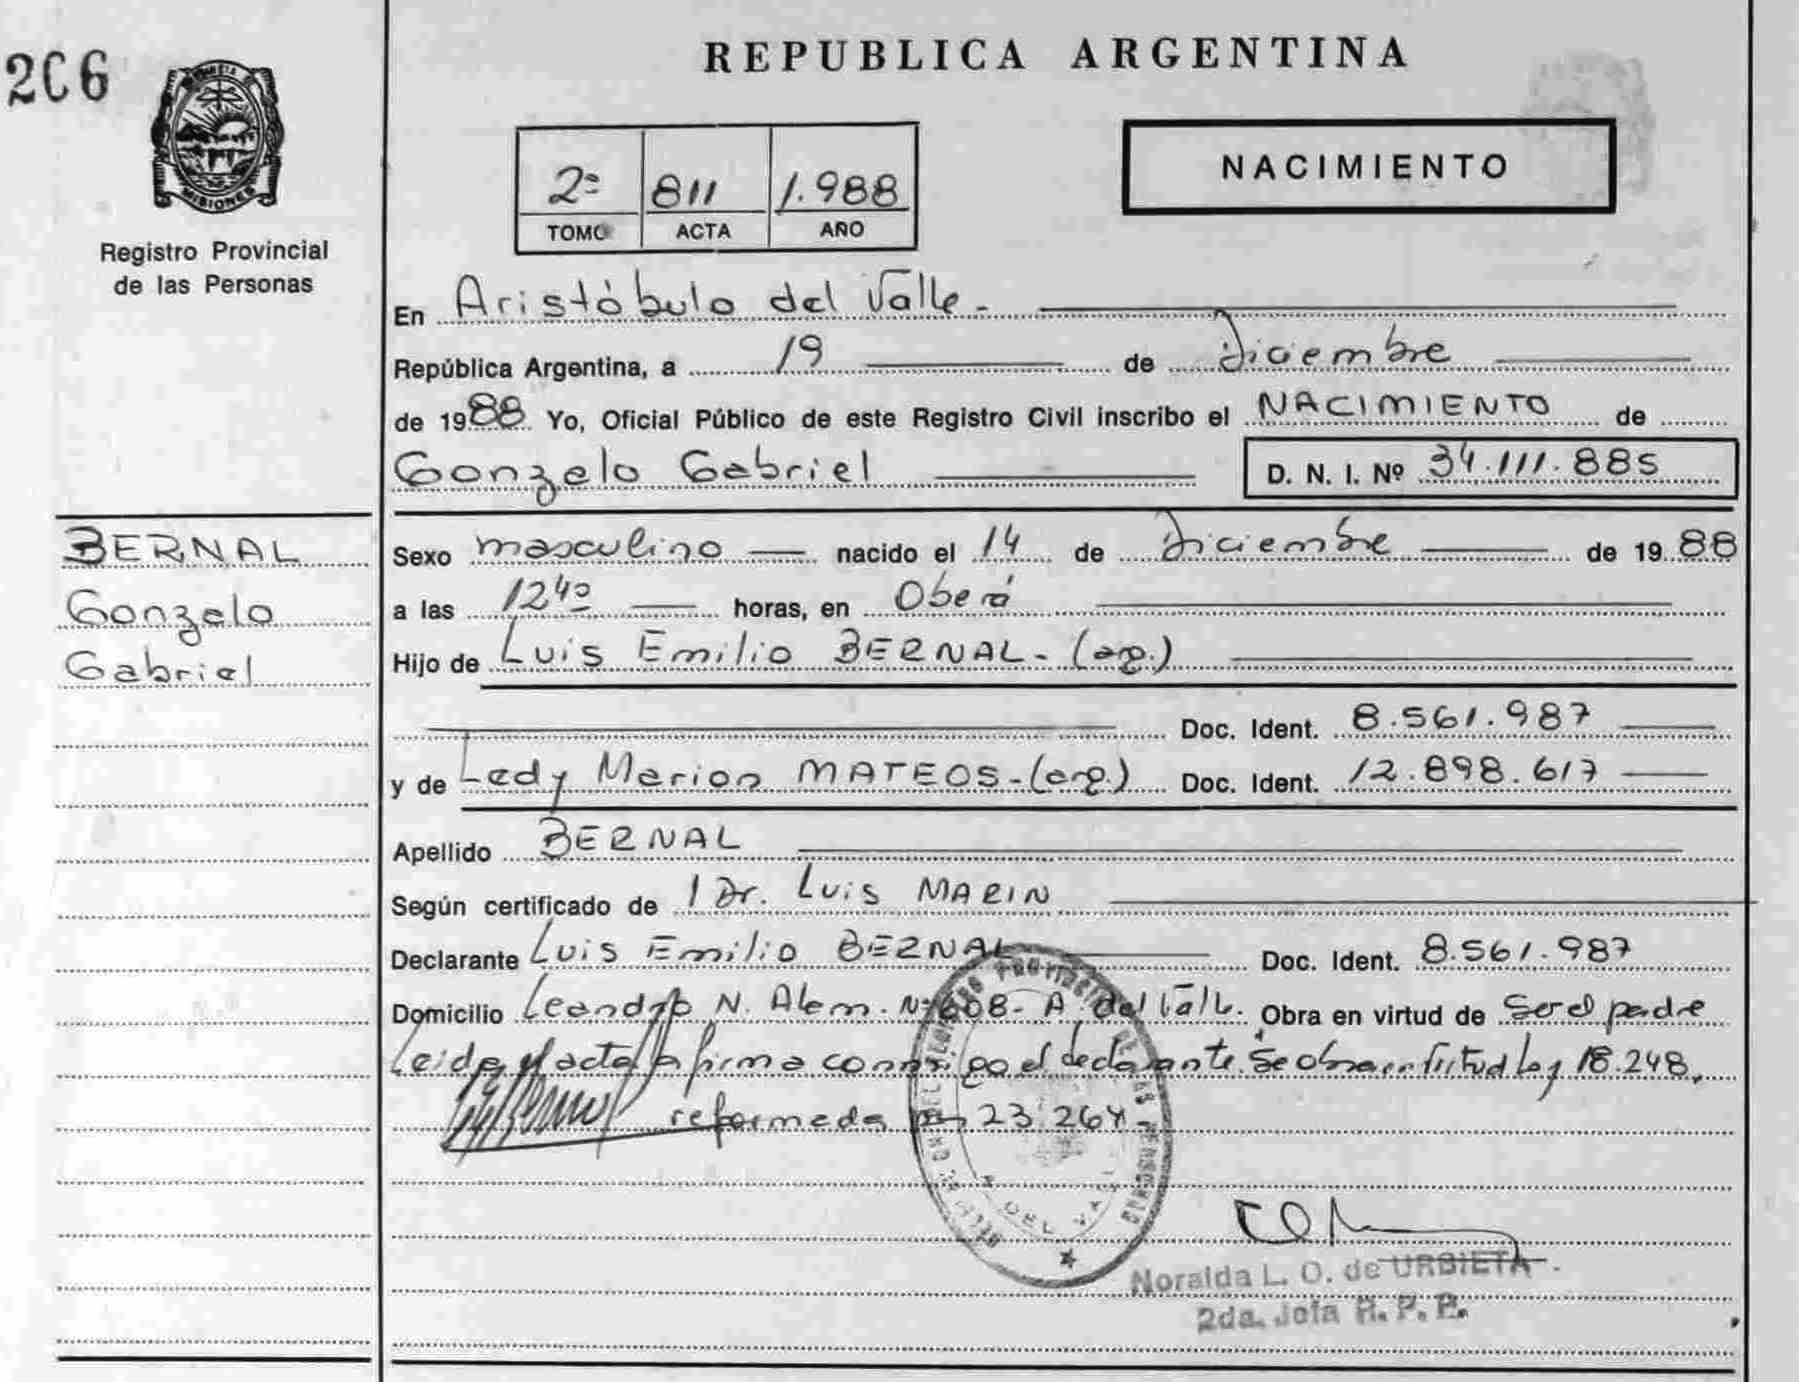 206
REPUBLICA ARGENTINA
MISIONES
Registro Provincial
de las Personas
2º 811 1.988
TOMO ACTA AÑO
NACIMIENTO
En Aristóbulo del Valle.-
República Argentina, a 19 de diciembre
de 1988 Yo, Oficial Público de este Registro Civil inscribo el NACIMIENTO de
Gonzalo Gabriel D. N. I. Nº 34.111.885
BERNAL
Gonzalo
Gabriel
Sexo masculino nacido el 14 de diciembre de 1988
a las 12 40 horas, en Oberá
Hijo de Luis Emilio BERNAL- (arg.)
Doc. Ident. 8.561.987
y de Lady Marion MATEOS-(arg.) Doc. Ident. 12.898.617
Apellido BERNAL
Según certificado de Dr. Luis MARIN
Declarante Luis Emilio BERNAL Doc. Ident. 8.561.987
Domicilio Leandro N. Alem. Nº 608- A. del Valle. Obra en virtud de ser el padre
Leida el acta la firma conmigo el declarante. Se obra en virtud Ley 18.248,
reformada por 23.264
DEL VA
Noralda L. O. de URBIETA
2da. Jefa R. P. P.